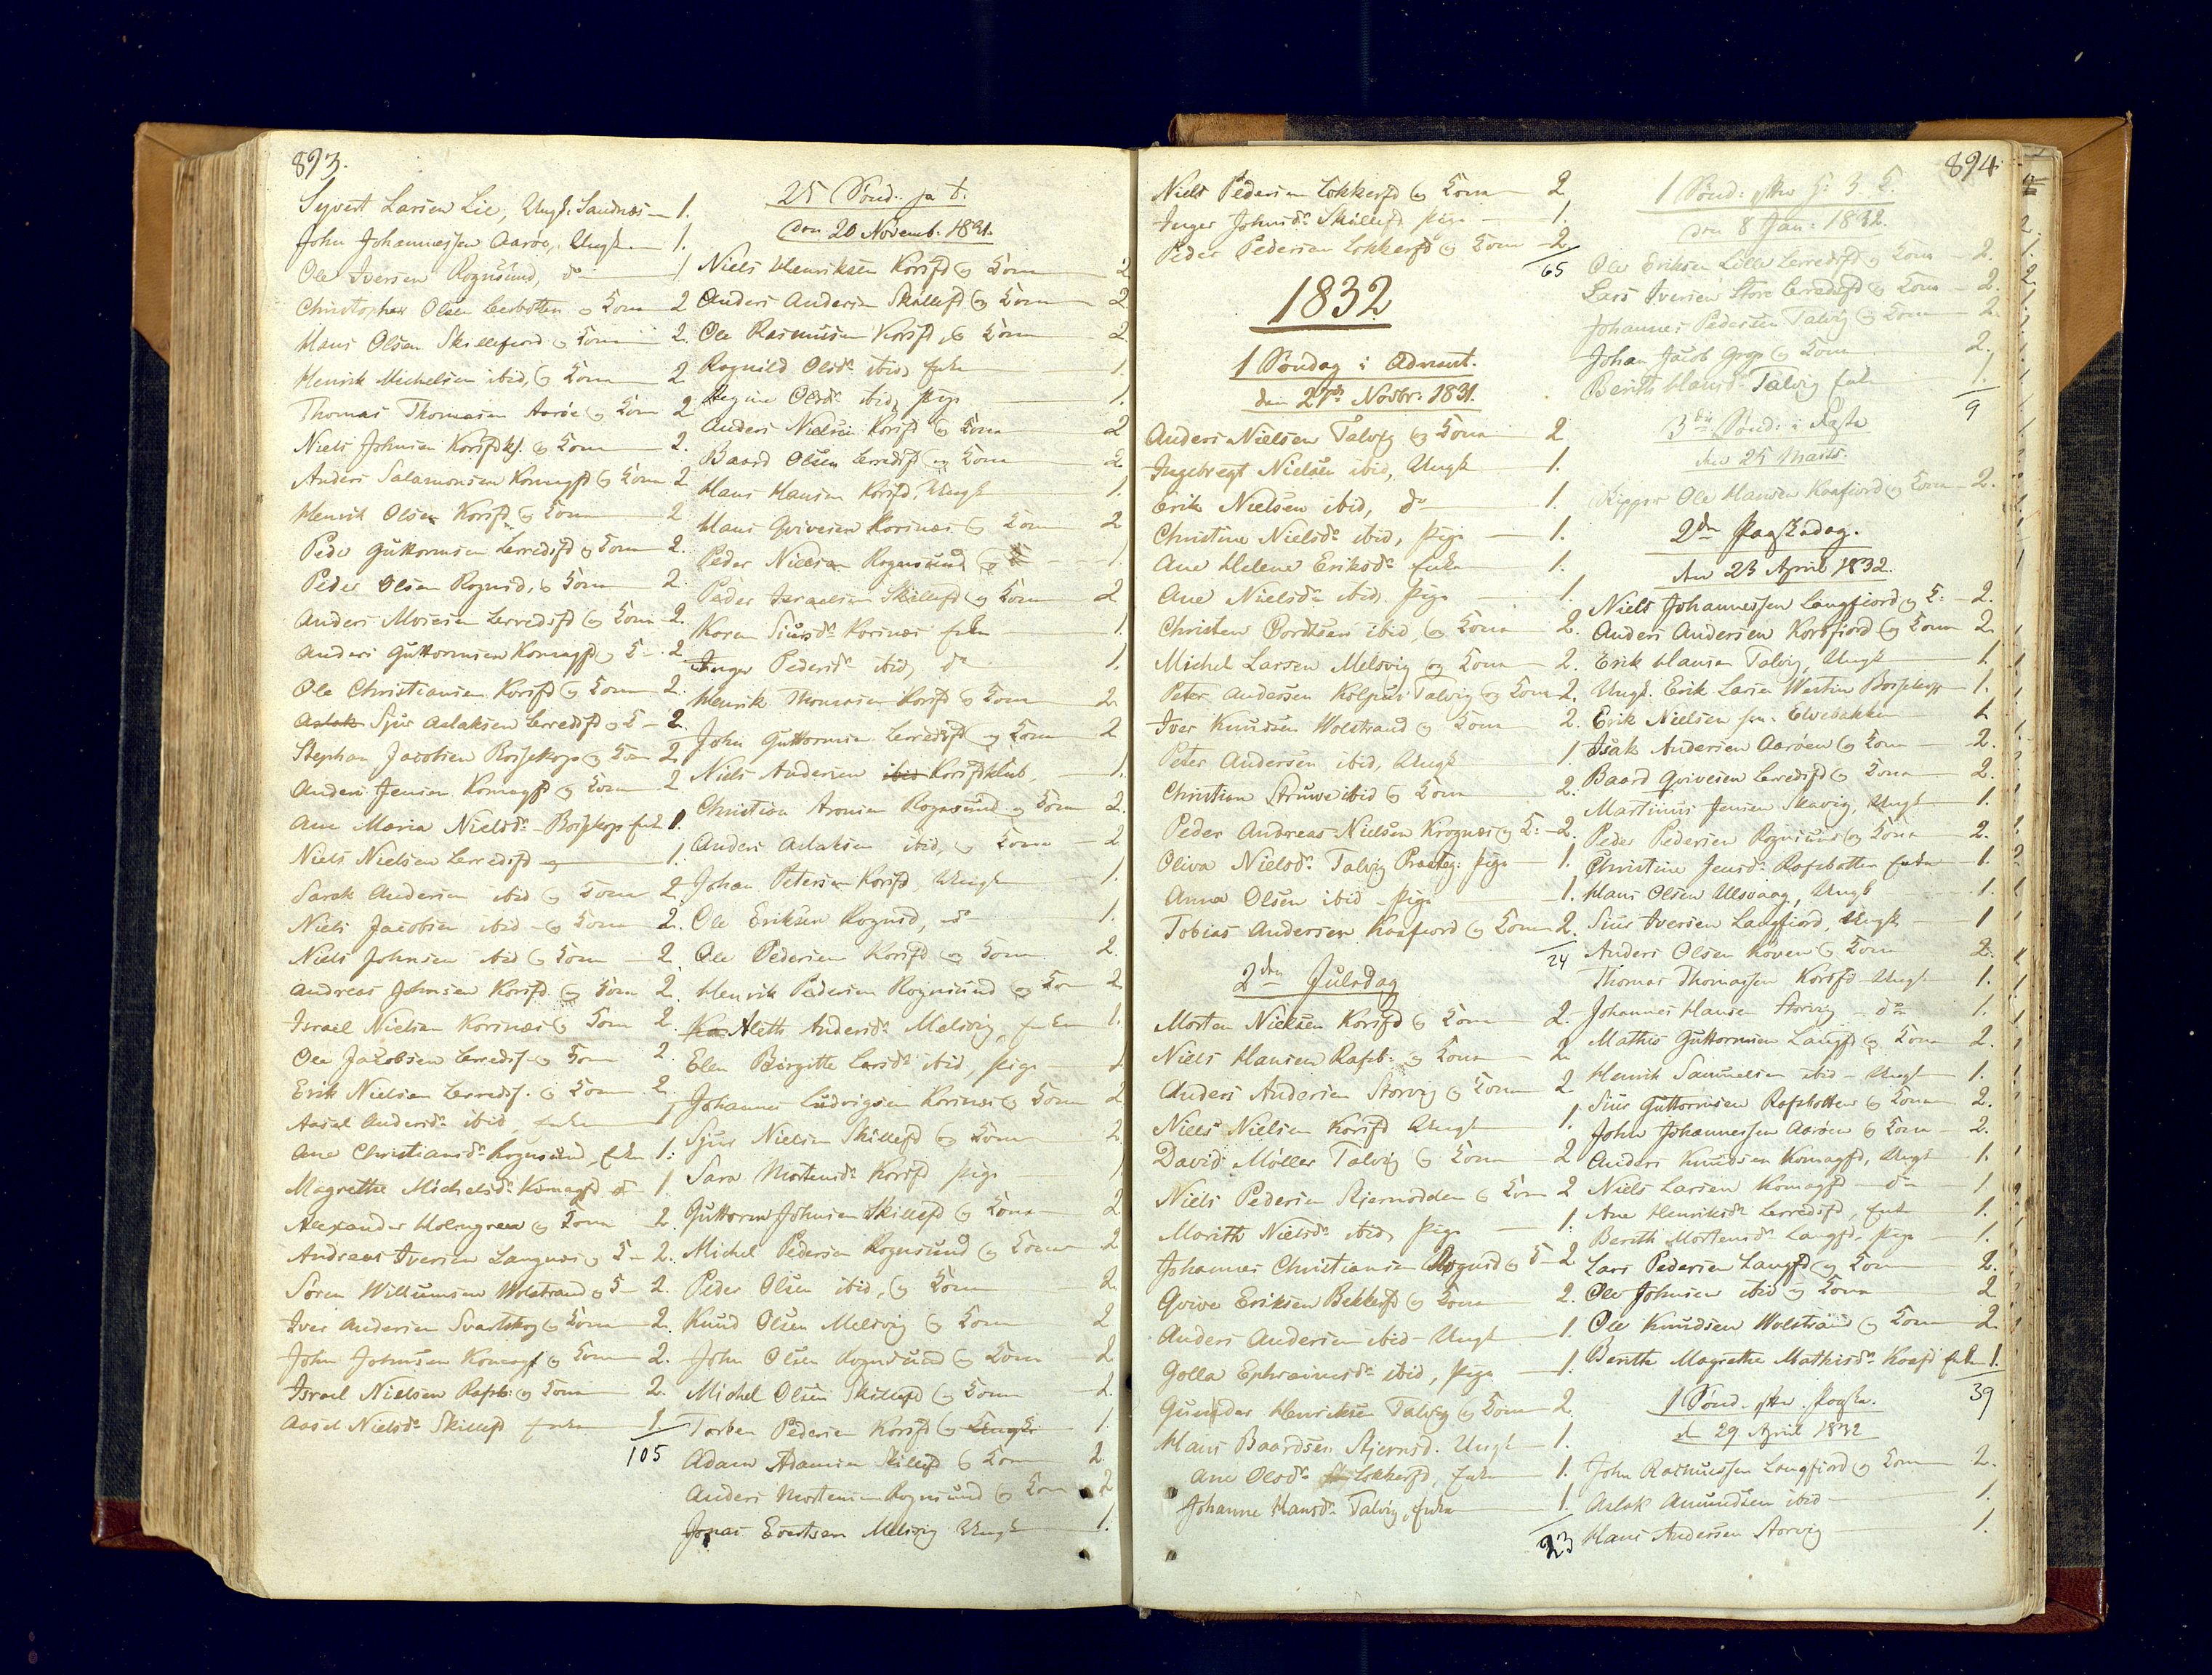 893.
Syvert Larsen Lie, Ungk. Sandnæs — 1.
John Johannessen Aarøe, Ungk. — 1.
Ole Iversen Rognsund, do — 1
Christopher Olsen Lerbotten og Kone 2
Hans Olsen Skillefiord og Kone 2.
Henrik Michelsen ibid, og Kone 2
Thomas Thomasen Aarøe og Kone 2
Niels Johnsen Korsfdkl. og Kone — 2.
Anders Salamonsen Komagfd og Kone 2
Henrik Olsen Korsfd og Kone — 2
Peder Guttormsen Lerredsfd og Kone — 2.
Peder Olsen Rognsd, og Kone — 2.
Anders Mosesen Lerredsfd og Kone — 2.
Anders Guttormsen Komagfd og K — 2
Ole Christiansen Korsfd og Kone 2.
Aslak Sjur Aslaksen Lerredsfd og K — 2.
Stephan Jacobsen Bossekop og Kone 2
Anders Jensen Komagfd og Kone 2
Ane Maria Nielsdr Bossekop Enke 1.
Niels Nielsen Lerredsfd — 1.
Sarak Andersen ibid og Kone 2.
Niels Jacobsen ibid og Kone 2.
Niels Johnsen ibid og Kone — 2.
Andreas Johnsen Korsfd og Kone 2.
Israel Nielsen Korsnæs og Kone 2.
Ole Jacobsen Lerredsf. og Kone 2.
Erik Nielsen Lerredsf. og Kone 2.
Aasel Andersdr ibid, Enke — 1
Ane Christiansdr Rognsund, Enke 1.
Magrethe Michelsdr Komagfd do — 1.
Alexander Holmgreen og Kone — 2.
Andreas Iversen Langnæs og K — 2.
Søren Willumsen Wolstrand og K — 2.
Iver Andersen Svartskog og Kone — 2.
John Johnsen Komagf og Kone — 2.
Israel Nielsen Rafsb. og Kone — 2.
Aasel Nielsdr Skillefd Enke — 1
105
25 Sønd. p. t.
den 20 Novemb. 1831.
Niels Henriksen Korsfd og Kone — 2
Anders Andersen Skillefd og Kone — 2
Ole Rasmussen Korsfd, og Kone — 2.
Ragnild Olsdr ibid, Enke — 1.
Regine Olsdr ibid, Pige — 1.
Anders Nielsen Korsfd og Kone — 2
Baard Olsen Lerredsf og Kone — 2.
Hans Hansen Korsfd, Ungk — 1.
Hans Qvivesen Korsnæs og Kone — 2
Peder Nielsen Rognsund og K — 1.
Peder Israelsen Skillefd og Kone — 2
Karen Siursdr Korsnæs Enke — 1.
Inger Pedersdr ibid, do — 1.
Henrik Thomasen Korsf og Kone — 2.
John Guttormsen Lerredsfd og Kone — 2
Niels Andersen ibid Korsfdklub, — 1.
Christian Aronsen Rognsund og Kone 2.
Anders Aslaksen ibid, og Kone — 2
Johan Petersen Korsfd, Ungk — 1.
Ole Eriksen Rognsd, do — 1.
Ole Pedersen Korsfd og Kone — 2.
Henrik Pedersen Rognsund og Ko — 2
Ka Aleth Andersdr Melsvig, Enke 1.
Elen Birgitte Larsdr ibid, Pige — 1
Johannes Ludvigsen Korsnæs og Kone 2
Sjur Nielsen Skillefd og Kone — 2.
Sara Mortensdr Korsfd Pige — 1
Guttorm Johnsen Skillefd og Kone — 2
Michel Pedersen Rognsund og Kone 2
Peder Olsen ibid, og Kone — 2.
Knud Olsen Melsvig og Kone — 2
John Olsen Rognsund og Kone — 2
Michel Olsen Skillefd og Kone — 2.
Torben Pedersen Korsfd og Ungk. — 1.
Adam Adamsen Skillefd og Kone 2.
Anders Mortensen Rognsund og Kone 2
Jonas Evertsen Melsvig Ungk — 1.
894.
Niels Pedersen Lokkerfd og Kone — 2
Inger Johnsdr Skillefd Pige — 1.
Peder Pedersen Lokkerfd og Kone — 2.
65
1832
1 Søndag i Advent.
den 27de Novbr. 1831.
Anders Nielsen Talvig og Kone — 2
Ingebregt Nielsen ibid, Ungk — 1.
Erik Nielsen ibid, do — 1.
Christine Nielsdr ibid, Pige — 1.
Ane Helene Eriksdr Enke — 1.
Ane Nielsdr ibid. Pige — 1.
Christen Bordtsen ibid, og Kone — 2.
Michel Larsen Melsvig og Kone — 2.
Peter Andersen Kolpus Talvig og Kone 2.
Iver Knudsen Wolstrand og Kone — 2.
Peter Andersen ibid, Ungk — 1.
Christian Struwe ibid og Kone — 2.
Peder Andreas Nielsen Krognæs og K: — 2.
Oliva Nielsdr Talvig Præsteg: Pige — 1.
Anna Olsen ibid — Pige — 1.
Tobias Andersen Kaafiord og Kone 2.
24
2den Juledag
Morten Nielsen Korsfd og Kone — 2.
Niels Hansen Rafsb. og Kone — 2
Anders Andersen Storvig og Kone 2
Niels Nielsen Korsfd Ungk — 1.
David Møller Talvig og Kone — 2
Niels Pedersen Stjernodden og Kone 2
Marith Nielsdr ibid, Pige — 1.
Johannes Christiansen Rognsd og K — 2
Qvive Eriksen Bekkerfd og Kone 2.
Anders Andersen ibid — Ungk — 1.
Golla Ephraimsdr ibid, Pige — 1.
Gunder Henriksen Talvig og Kone 2
Hans Baardsen Stjernsd. Ungk 1.
Ane Olsdr Lokkerfd, Enke — 1.
Johanne Hansdr Talvig, Enke — 1.
23
1 Sønd: efter H: 3 K.
den 8 Jan: 1832.
Ole Eriksen Lille Lerredsfd og Kone — 2.
Lars Iversen Store Lerredsfd og Kone — 2.
Johannes Pedersen Talvig og Kone — 2.
Johan Jacob Grop og Kone — 2.
Berith Hansdr Talvig Enke — 1.
9
3die Sønd: i Faste
den 25 Marts.
Skipper Ole Hansen Kaafiord og Kone — 2.
2den Paaskedag.
den 23 April 1832.
Niels Johannessen Langfiord og K: — 2.
Anders Andersen Korsfiord og Kone 2.
Erik Hansen Talvig, Ungk — 1.
Ungk. Erik Larsen Westin Bossekop — 1.
Erik Nielsen sen. Elvebakken — 1.
Isak Andersen Aarøen og Kone — 2.
Baard Qvivesen Lerredsfd og Kone — 2.
Martinus Jensen Skavig, Ungk. — 1.
Peder Pedersen Rognsund og Kone — 2.
Christine Jensdr Rafsbotten Enke — 1.
Hans Olsen Ulsvaag, Ungk — 1.
Siur Iversen Langfiord, Ungk — 1
Anders Olsen Koven og Kone — 2.
Thomas Thomassen Korsfd Ungk 1.
Johannes Hansen Storvig — do — 1.
Mathis Guttormsen Langfd og Kone 2.
Henrik Samuelsen ibid — Ungk — 1.
Siur Guttormsen Rafsbotten og Kone 2.
John Johannessen Aarøen og Kone — 2.
Anders Knudsen Komagfd, Ungk — 1.
Niels Larsen Komagfd — do — 1.
Ane Henriksdr Lerredsfd, Enke — 1.
Berith Mortensdr Langfd, Pige — 1.
Lars Pedersen Langfd og Kone — 2.
Ole Johnsen ibid og Kone — 2
Ole Knudsen Wolstrand og Kone — 2.
Berith Magrethe Mathisdr Kaafd Enke 1.
39
1 Sønd. efter Paaske.
d 29 April 1832
John Rasmussen Langfiord og Kone — 2.
Aslak Amundsen ibid — 1.
Hans Andersen Storvig — 1.